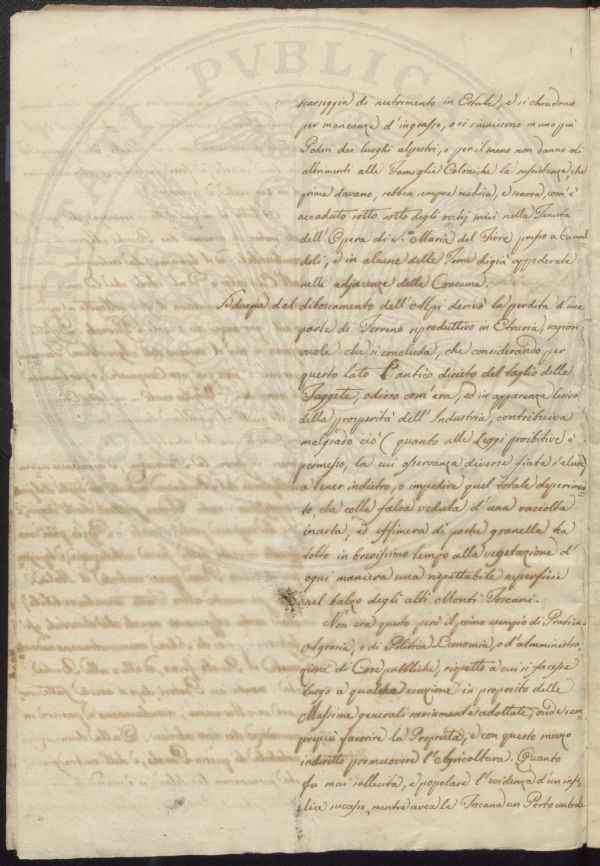 scarseggia di nutrimento in Estate, e si chiudono
per mancanza d'ingrasso, o si riuniscono in uno più
Poderi dei luoghi alpestri, o per il meno non danno di
altrimenti alle Famiglie Coloniche la sussistenza, che
prima davano, sebben sempre medica, e scarsa, com'è
accaduto sotto sotto degli occhj miei nella Tenuta
dell'Opera di S.ta Maria del Fiore, presso a Camal
doli, e in alcune delle Terre digià appoderate
nelle adjacenze della Consuma.
Se dunque dal diboscamento dell'Alpi derivò la perdita d'una
parte di Terreno riproduttivo in Etruria,
che si concluda, che considerando, per
questo lato l'antico divieto del taglio delle
Faggete, odioso com'era, ed in apparenza lesivo
della prosperità dell'Industria, contribuiva
malgrado ciò (quanto alle Leggi proibitive è
permesso, la cui osservanza diverse fiate s'elude)
a tener indietro, o impedire quel totale deperimen
to, che colla falsa veduta d'una raccolta
incerta, ed effimera di poche granella ha
tolto in brevissimo tempo alla vegetazione d'
ogni maniera una rispettabile superficie
nel balzo degli alti Monti Toscani.
Non era questo però il primo esempio di Pratica
Agraria, o di Politica-Economia, o d'amministra-
zione di Cose pubbliche, rispetto a cui si facesse
luogo a qualche eccezione in proposito delle
Massime generali saviamente adottate, onde sem
prepiù favorire la Proprietà, e con questo mezzo
indiretto promuovere l'Agricoltura. Quanto
fu mai sollecita, e popolare l'evidenza d'un infe
lice successo, mentre avea la Toscana un Porto